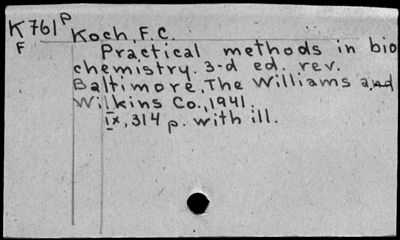 K761p Koch, F.C.
F Practical methods in bio
chemistry. 3-d ed. rev.
Baltimore, The Williams and
Wilkins Co., 1941.
IX, 314 p. with ill.